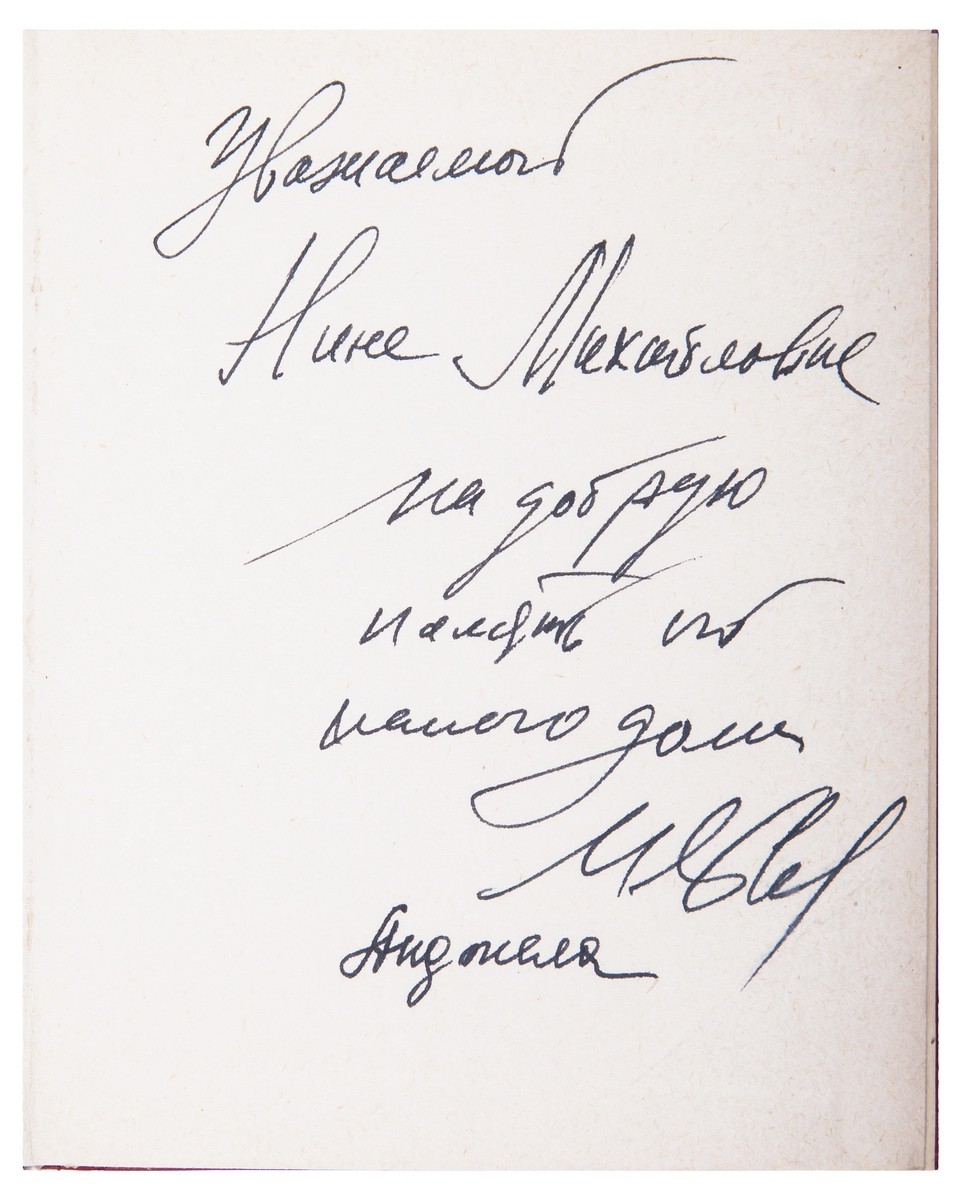 Уважаемой
Нине Михайловне
на добрую
память от
нашего дома
Анджела